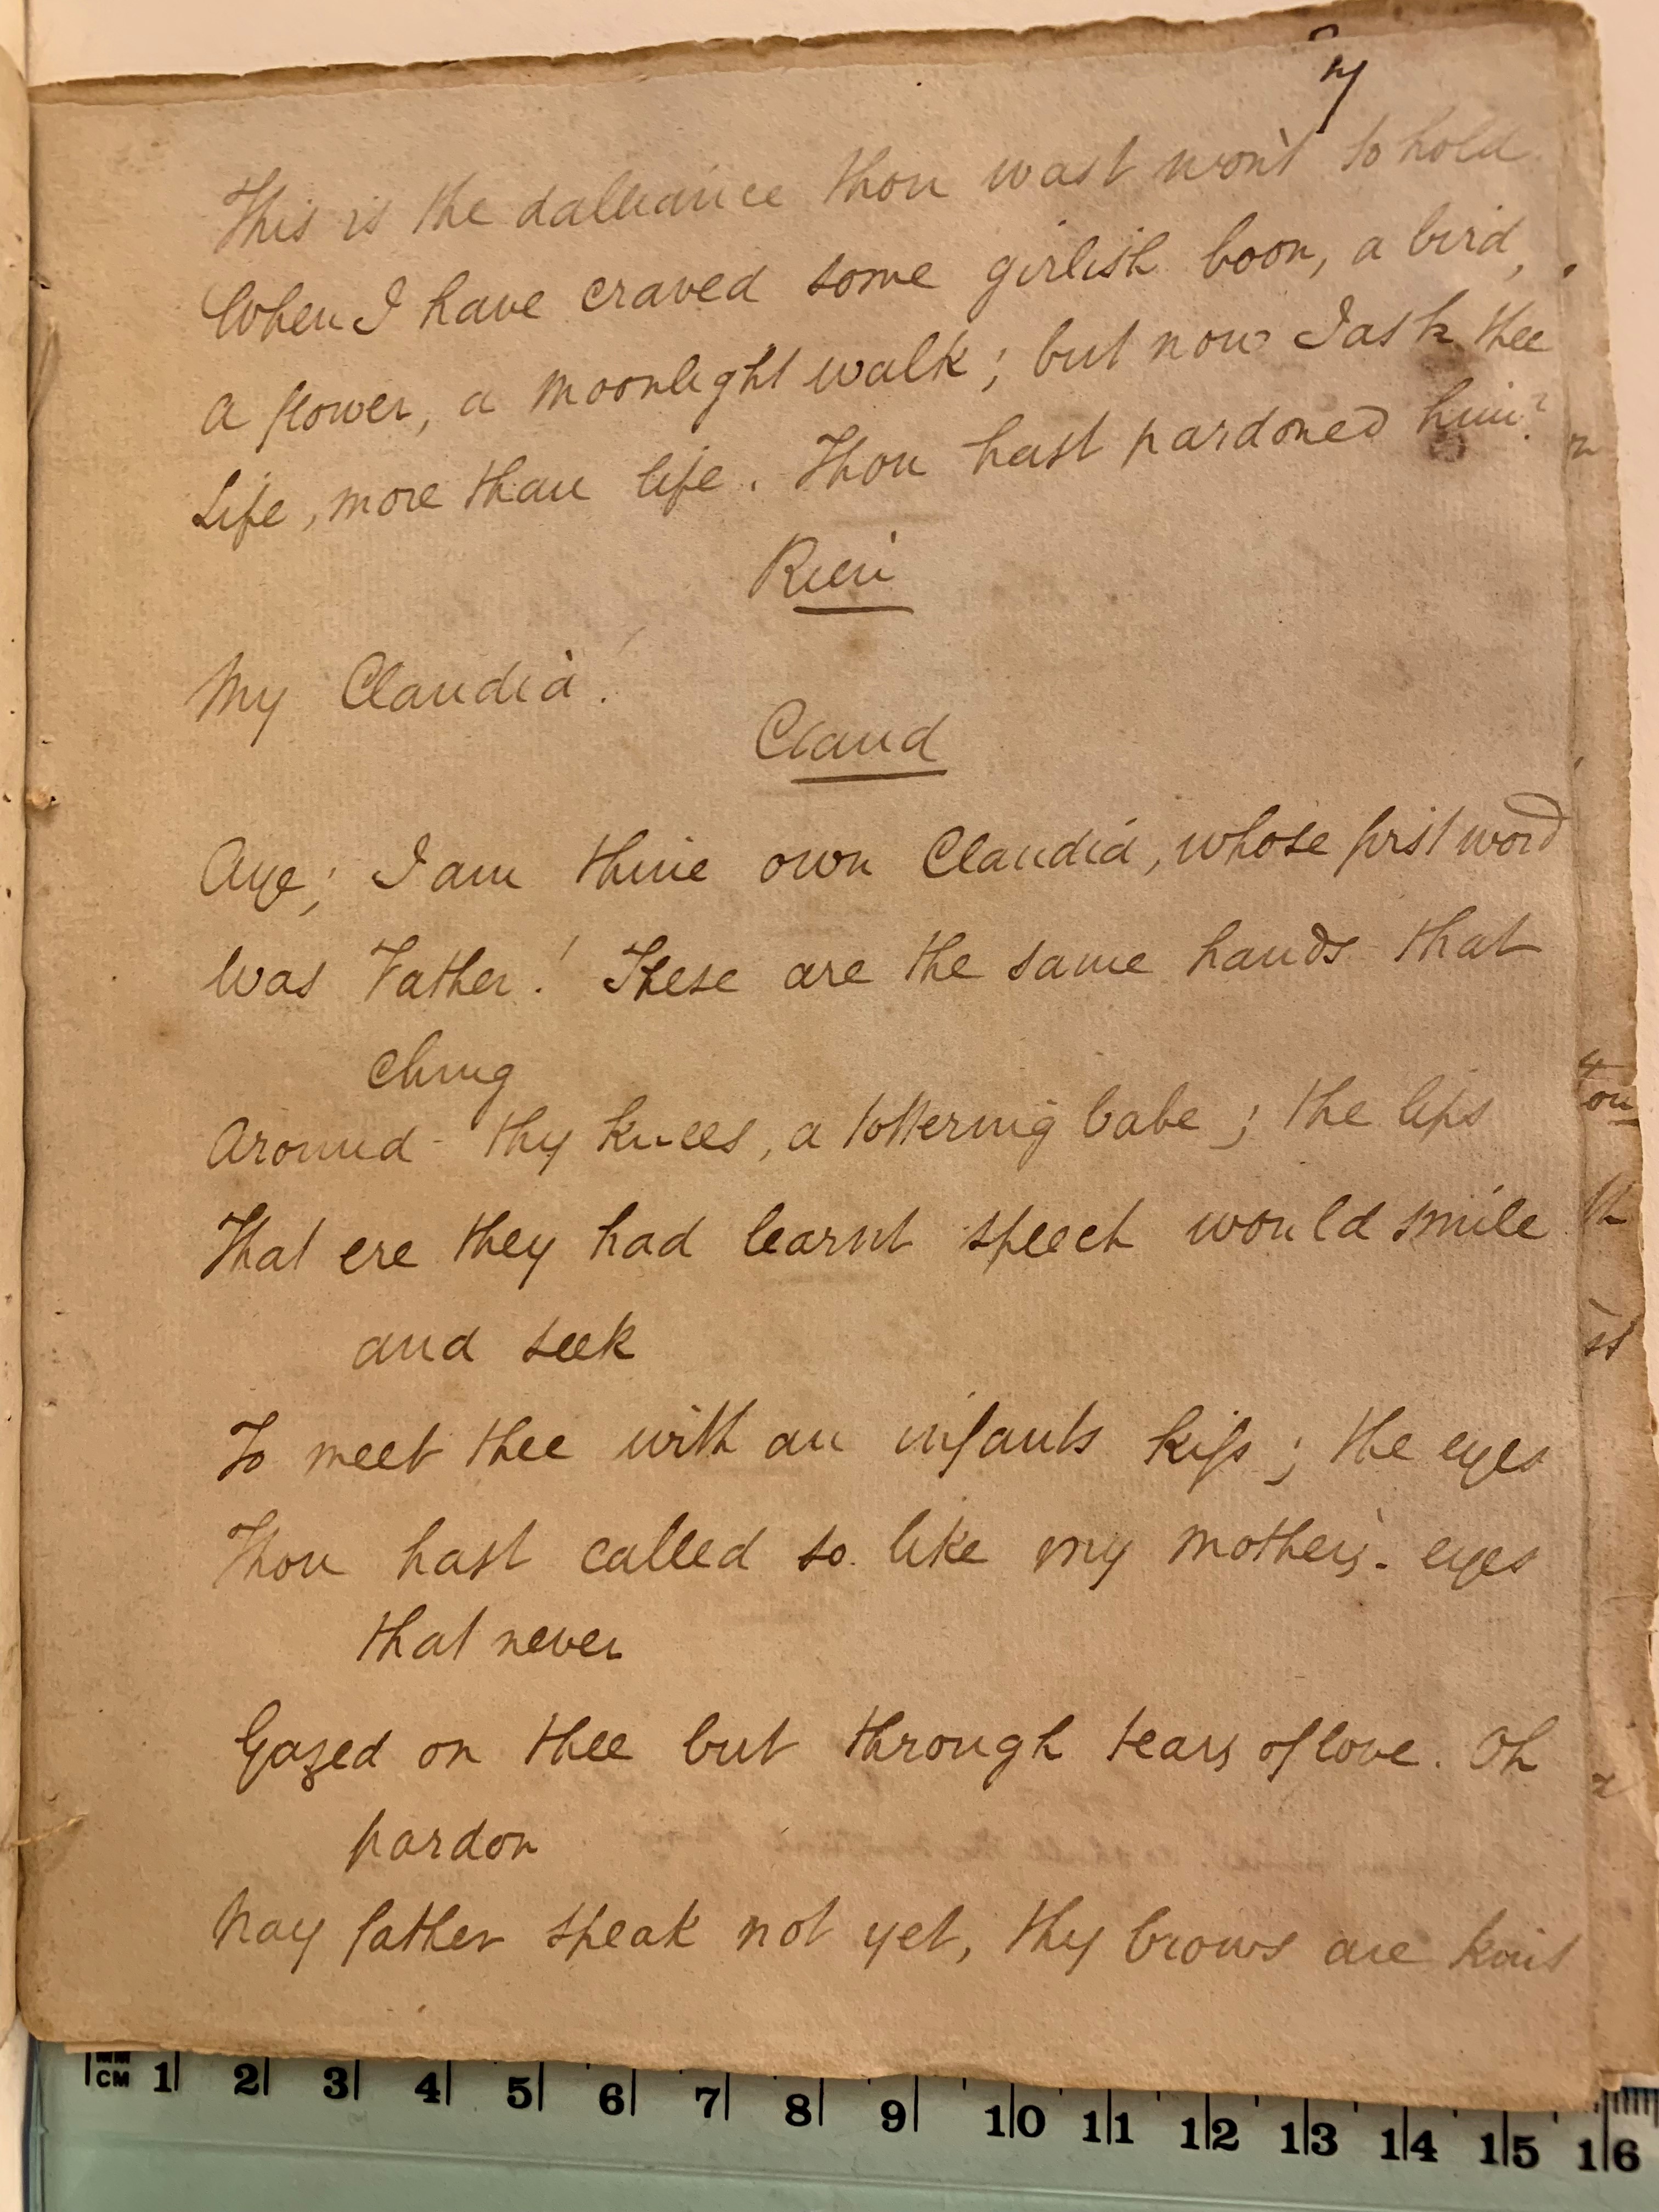 7
This is the dalliance thou wast wont to hold
When I have craved some girlish boon, a bird,
A flower, a moonlight walk; but now I ask thee
Life, more than life. Thou hast pardoned him?
Rien
My Claudia!
Claud
Aye; I am thine own Claudia, whose first word
Was Father! These are the same hands that
clung
Around thy knees, a tottering babe; the lips
That ere they had learnt speech would smile
and seek
To meet thee with an infants kiss; the eyes
Thou hast called so like my mother's eyes
that never
Gazed on thee but through tears of love. Oh
pardon
Nay father speak not yet, thy brows are knit
MM
CM 1 2 3 4 5 6 7 8 9 10 11 12 13 14 15 16